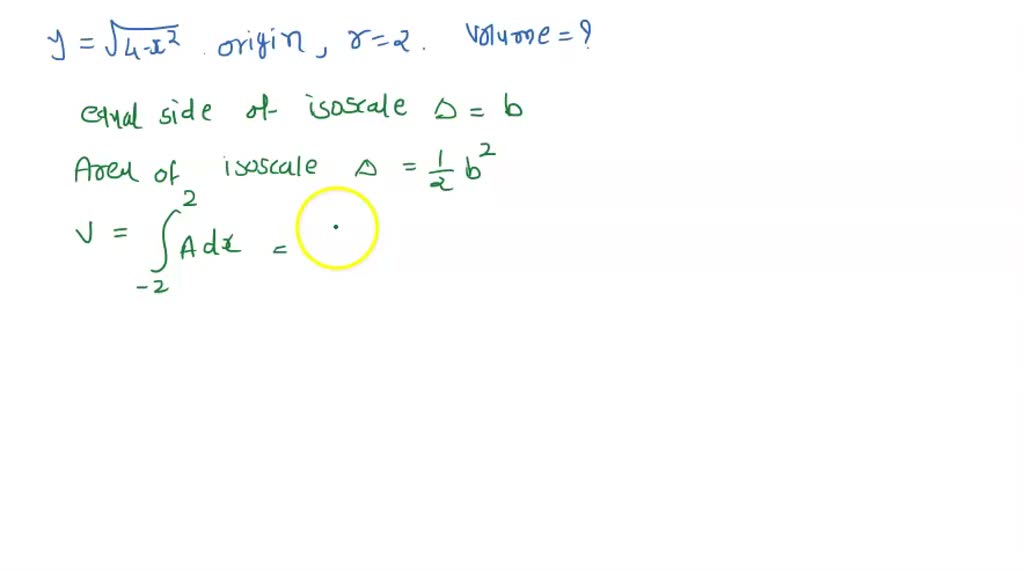 y = √4-x² . origin, r=2. Volume = ?
equal side of isoscale Δ = b
Area of isoscale Δ = 1/2 b²
V = ∫₋₂² A dx =